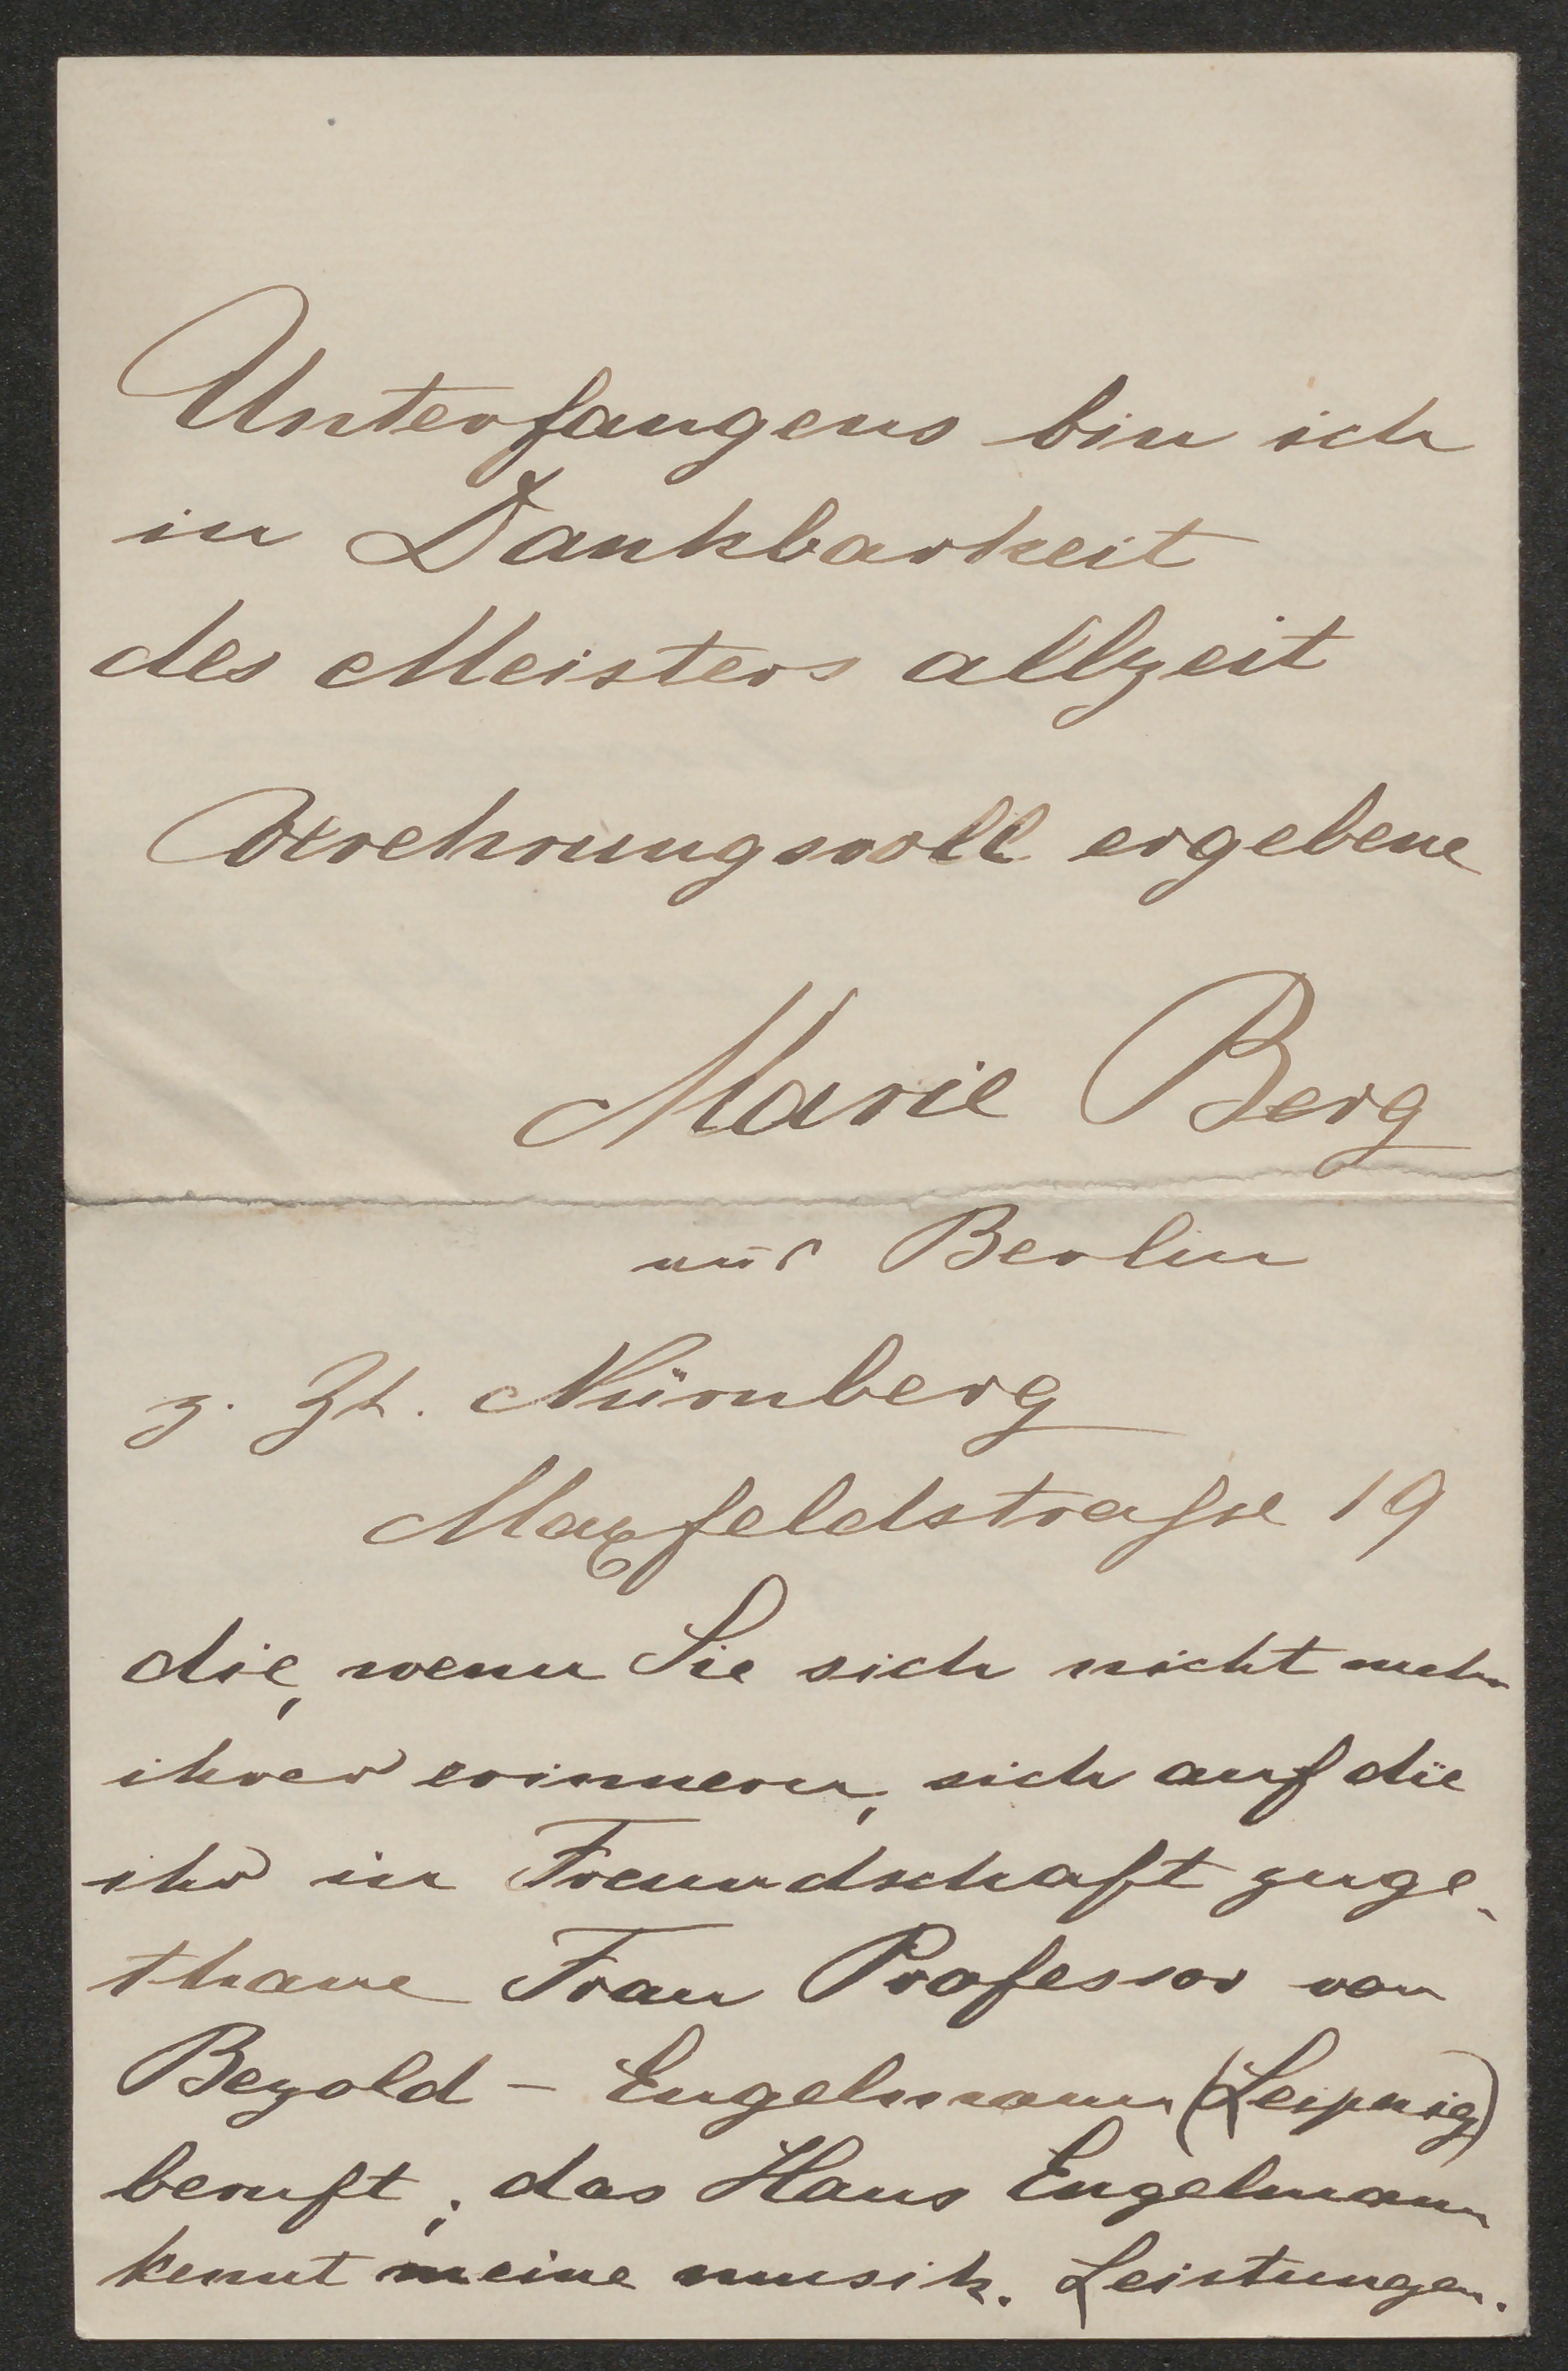 Unterfangens bin ich
in Dankbarkeit
des Meisters allzeit
Verehrungsvoll ergebene
Marie Berg
aus Berlin
z. Zt. Nürnberg
Maxfeldstrasse 19
die, wenn Sie sich nicht mehr
ihrer erinnern, sich auf die
ihr in Freundschaft zuge-
thane Frau Professor von
Bezold - Engelmann (Leipzig)
beruft; das Haus Engelmann
kennt meine musik. Leistungen.